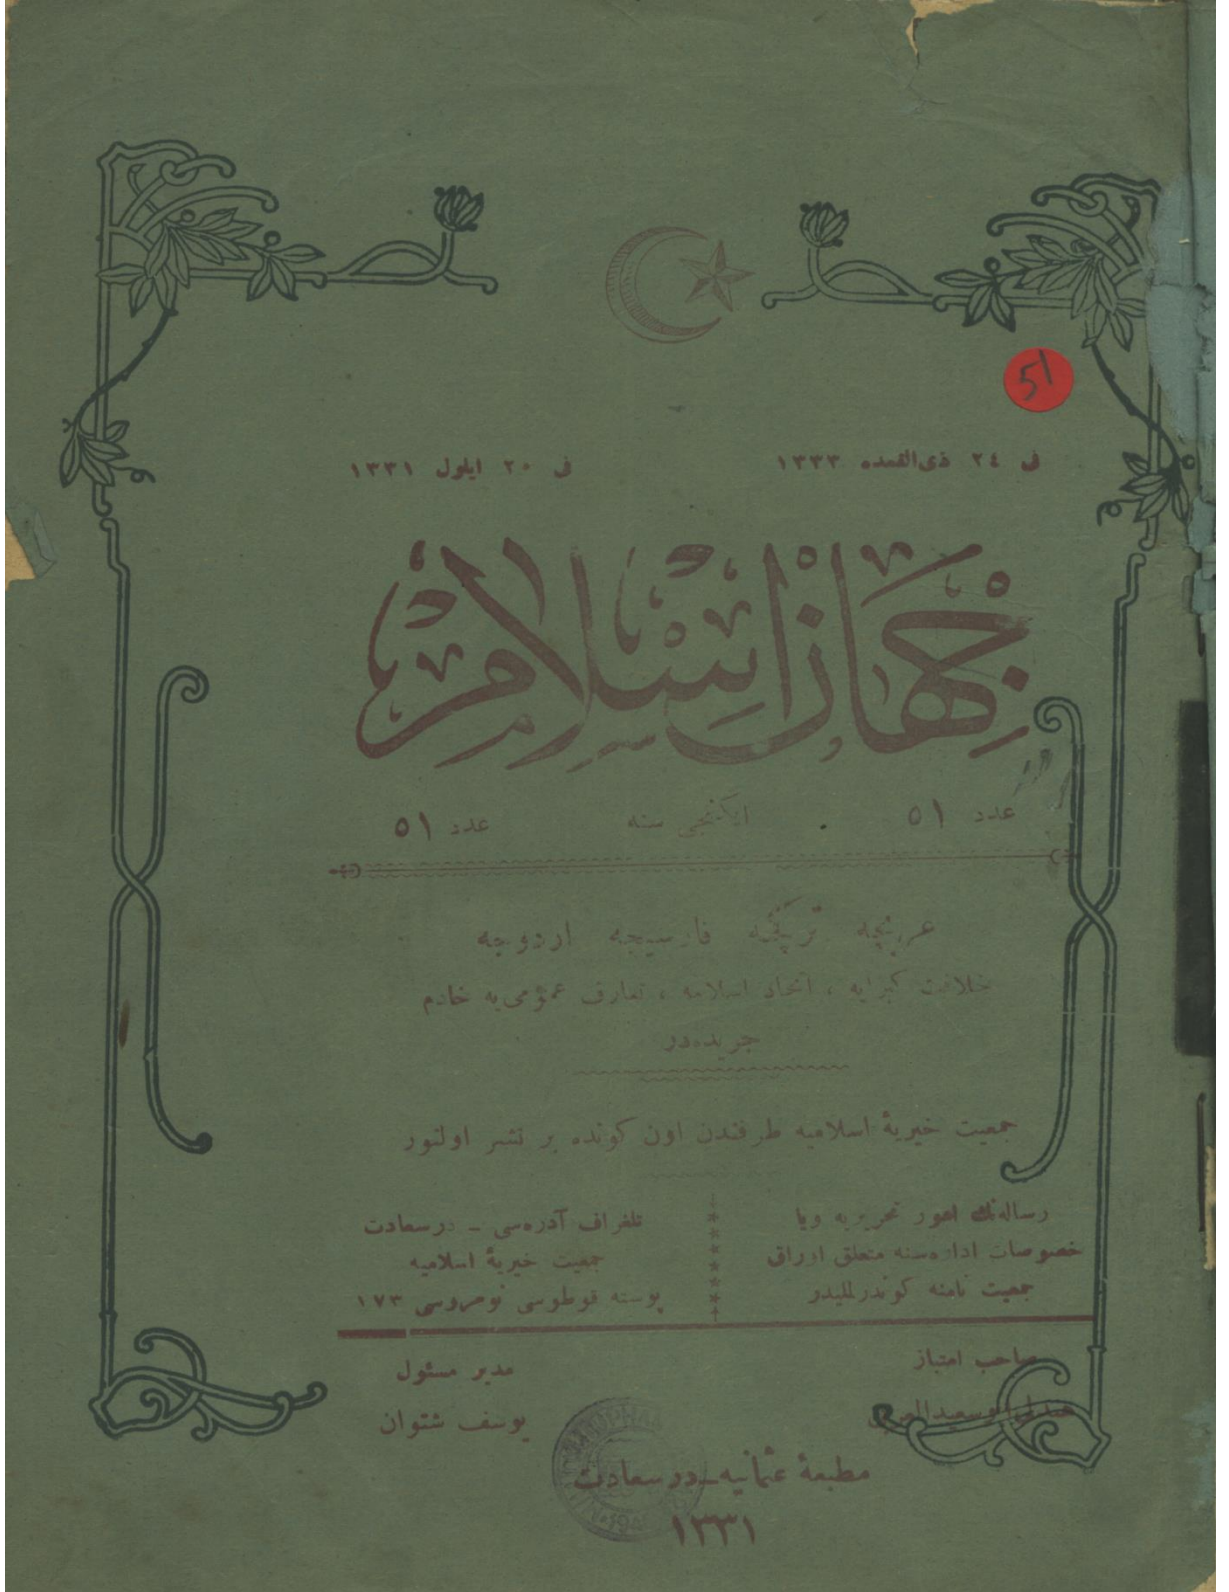 51
فی ٢٤ ذی‌القعده ١٣٣٣
فی ٢٠ ایلول ١٣٣١
جهان اسلام
عدد ٥١
ایکنجی سنه
عدد ٥١
عربیجه ترکجه فارسیجه اردوجه
خلافت کبرایه ، اتحاد اسلامه ، تعارف عمومی‌یه خادم
جریده‌در
جمعیت خیریۀ اسلامیه طرفندن اون کونده بر نشر اولنور
رساله‌نك امور تحریریه ویا
خصوصات اداره‌سنه متعلق اوراق
جمعیت نامنه کوندرلملیدر
تلغراف آدره‌سی ـ درسعادت
جمعیت خیریۀ اسلامیه
پوسته قوطوسی نومروسی ١٧٣
صاحب امتیاز
مدیر مسئول
یوسف شتوان
مطبعۀ عثمانیه ـ درسعادت
١٣٣١